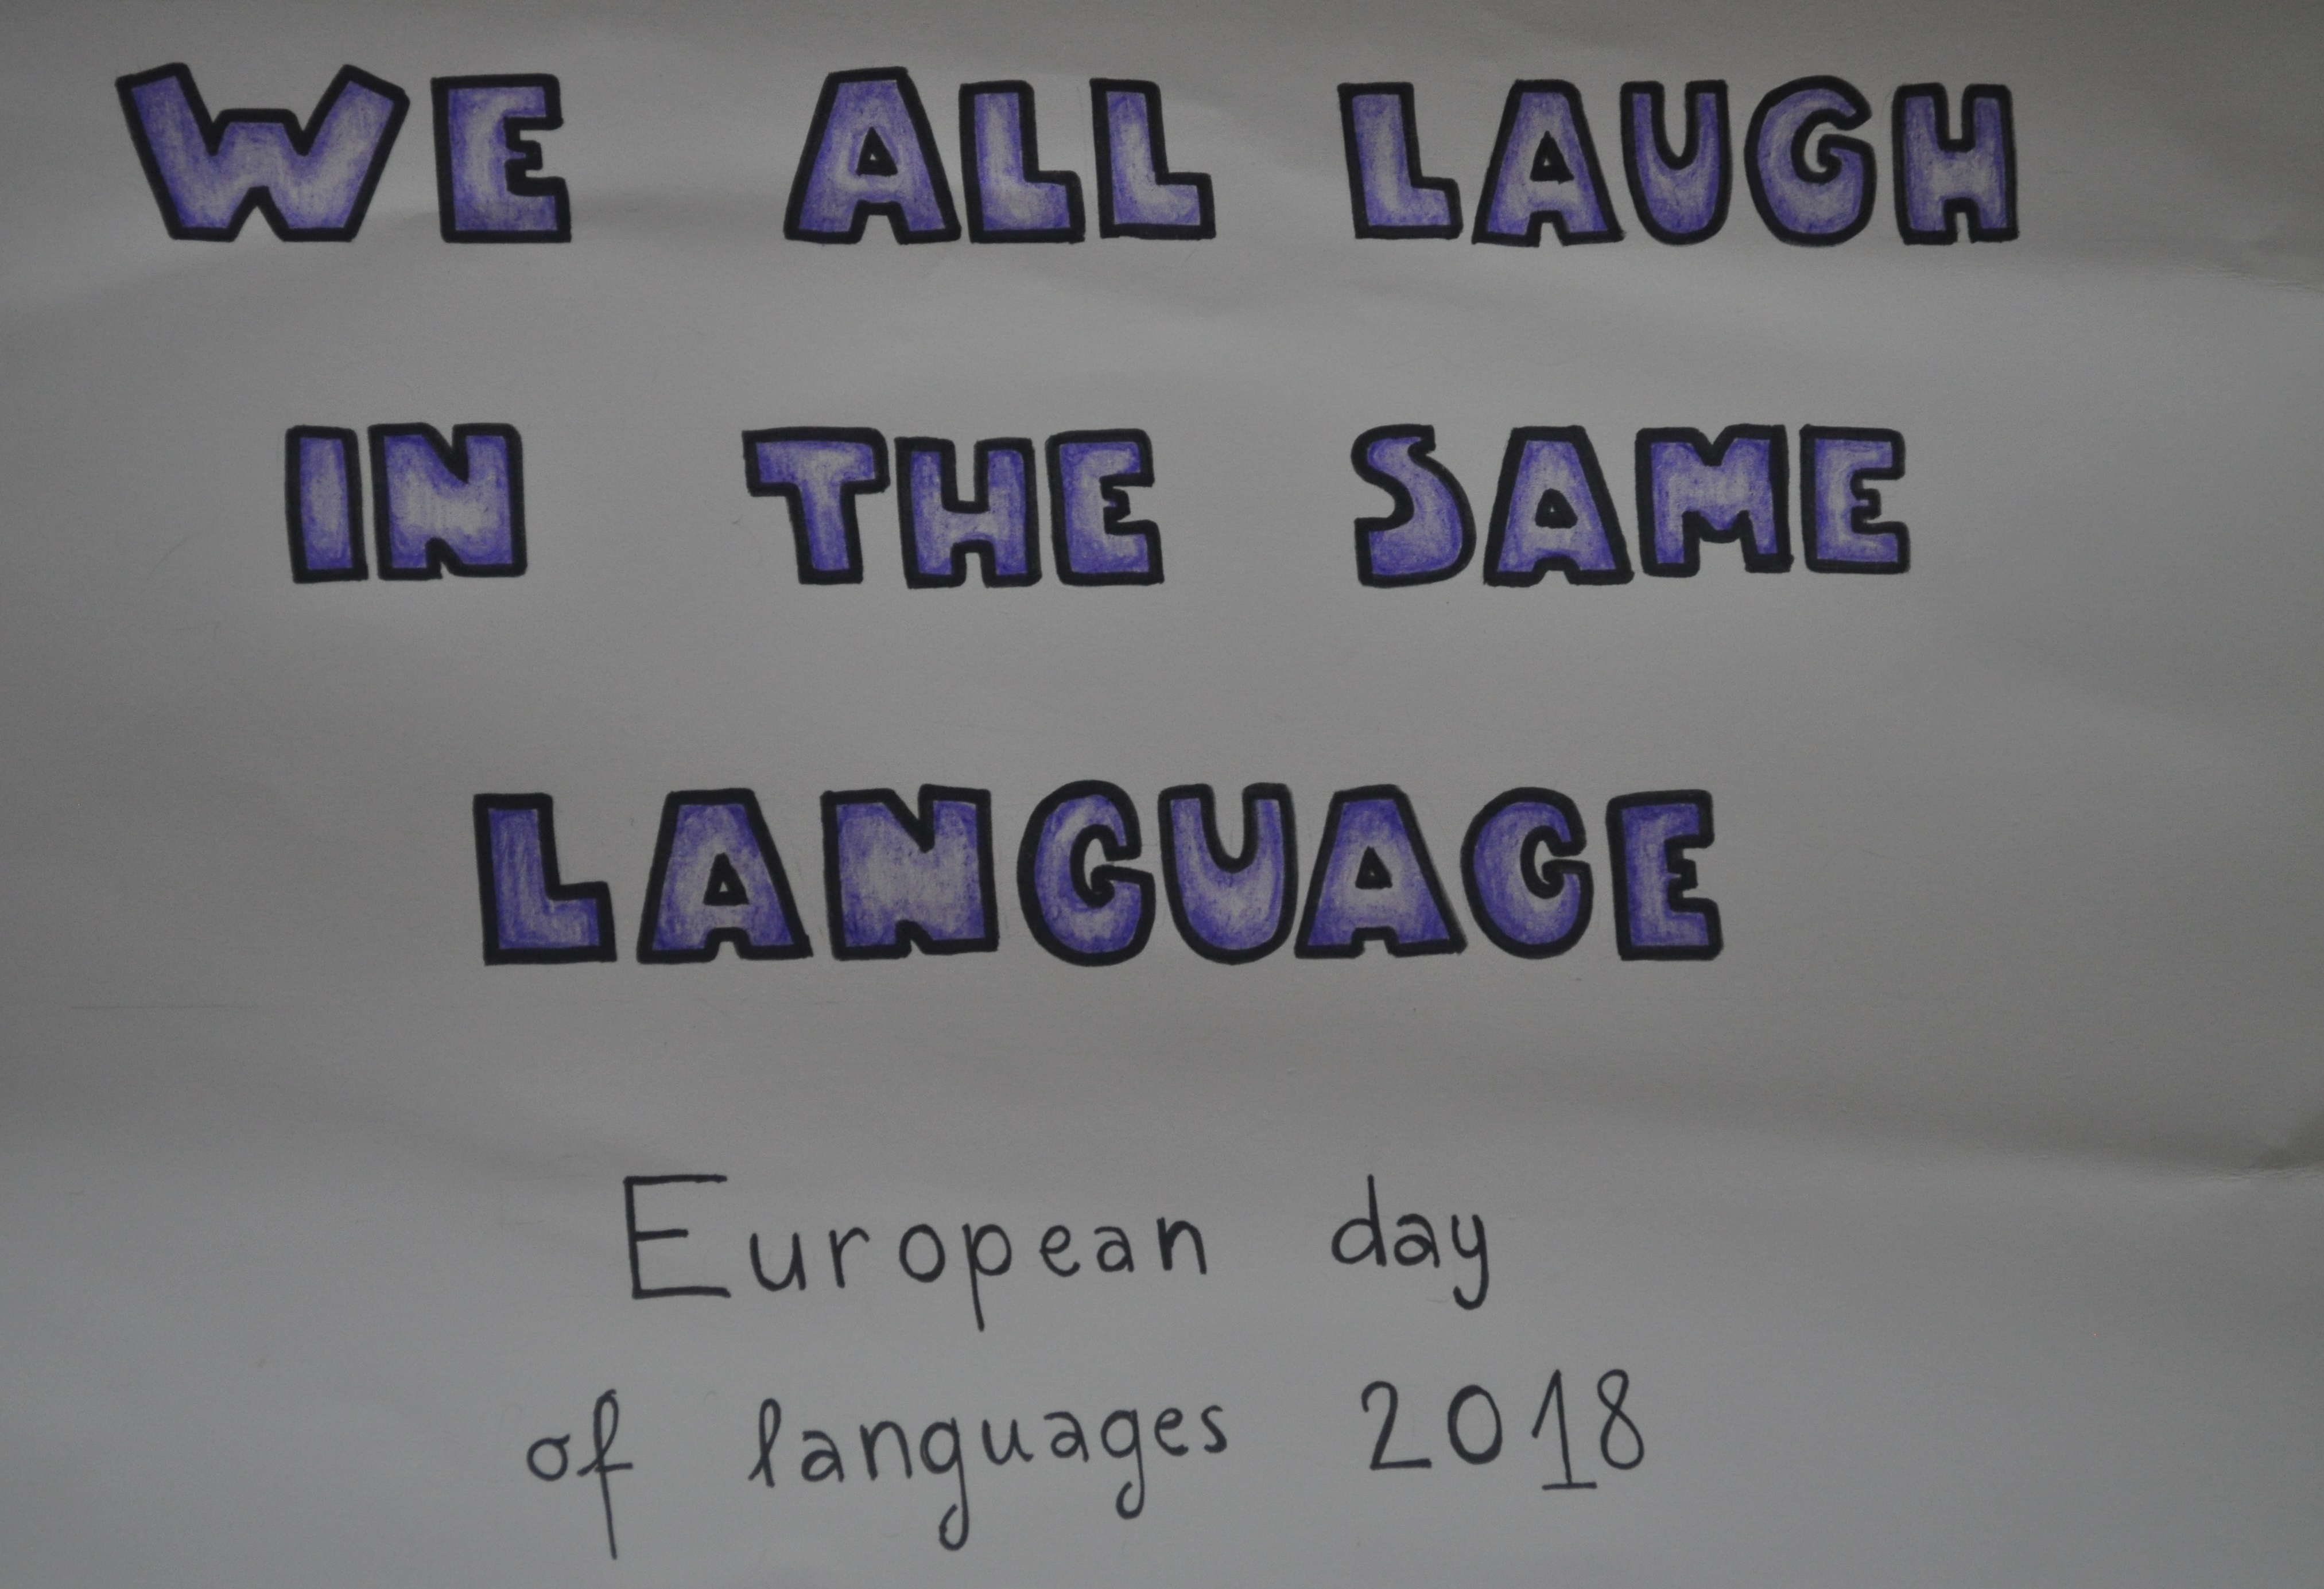 WE ALL LAUGH
IN THE SAME
LANGUAGE
European day
of languages 2018